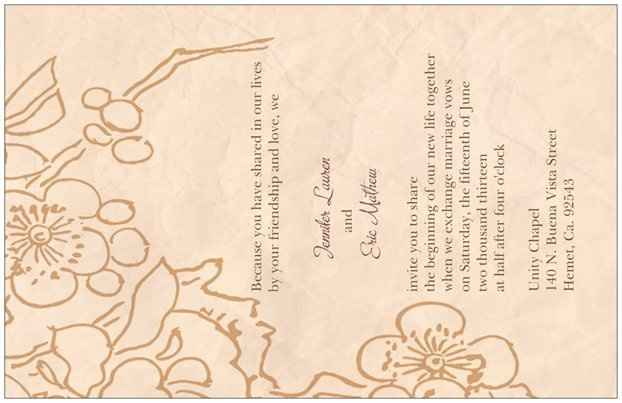 Because you have shared in our lives
by your friendship and love, we
Jennifer Lauren
and
Eric Mathew
invite you to share
the beginning of our new life together
when we exchange marriage vows
on Saturday, the fifteenth of June
two thousand thirteen
at half after four o'clock
Unity Chapel
140 N. Buena Vista Street
Hemet, Ca. 92543